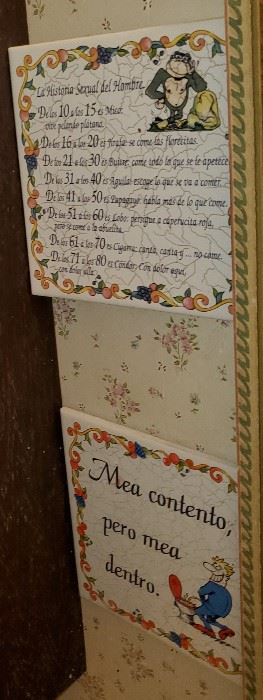 La Historia Sexual del Hombre
De los 10 a los 15 es Mico:
vive pelando platano.
De los 16 a los 20 es Jirafa: se come las florecitas.
De los 21 a los 30 es Buitre: come todo lo que se le apetece.
De los 31 a los 40 es Aguila: escoge lo que se va a comer.
De los 41 a los 50 es Papagayo: habla más de lo que come.
De los 51 a los 60 es Lobo: persigue a caperucita roja,
pero se come a la abuelita.
De los 61 a los 70 es Cigarra: canta, canta y ... no come.
De los 71 a los 80 es Condor: Con dolor aqui,
con dolor alla.
Mea contento,
pero mea
dentro.